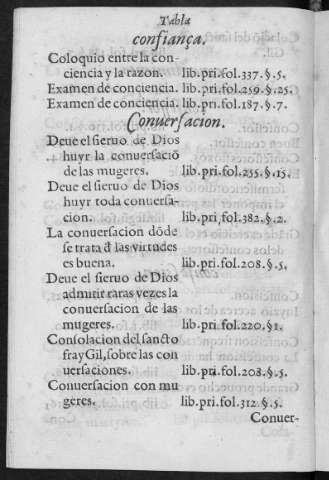 Tabla
confiança.
Coloquio entre la con-
ciencia y la razon. lib.pri.fol.337.§.5.
Examen de conciencia. lib.pri.fol.259.§.25.
Examen de conciencia. lib.pri.fol.187.§.7.
Conuersacion.
Deue el sieruo de Dios
huyr la conuersaciõ
de las mugeres. lib.pri.fol.255.§.15.
Deue el sieruo de Dios
huyr toda conuersa-
cion. lib.pri,fol.382.§.2.
La conuersacion dõde
se trata đ las virtudes
es buena. lib.pri.fol.208.§.5,
Deue el sieruo de Dios
admitir raras vezes la
conuersacion de las
mugeres. lib.pri.fol.220.§1.
Consolacion del sancto
fray Gil, sobre las con
uersaciones. lib.pri.fol.208.§.5.
Conuersacion con mu
geres. lib.pri.fol.312.§.5.
Conuer-